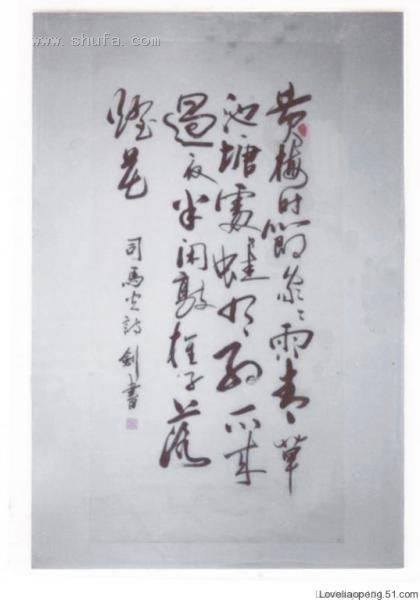 www.shufa.com
黄梅时節家々雨青々草
池塘處々蛙有约不来
過夜半闲敲棋子落
燈花
司馬光詩 書
Loveliaopeng.51.com